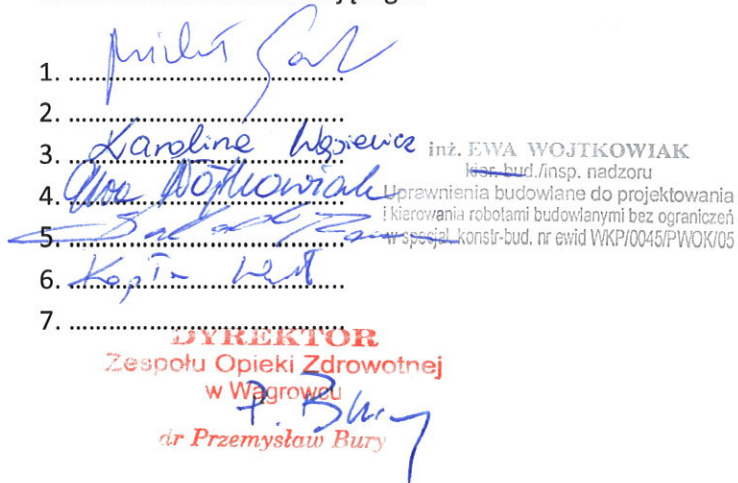 1. ..............................
2. ..............................
3. Karolina Wąsiewicz
inż. EWA WOJTKOWIAK
kier. bud./insp. nadzoru
4. Ewa Wojtkowiak
Uprawnienia budowlane do projektowania
i kierowania robotami budowlanymi bez ograniczeń
5. ..............................
w specjal. konstr-bud. nr ewid WKP/0045/PWOK/05
6. ..............................
7. ..............................
DYREKTOR
Zespołu Opieki Zdrowotnej
w Wągrowcu
P. Bury
dr Przemysław Bury